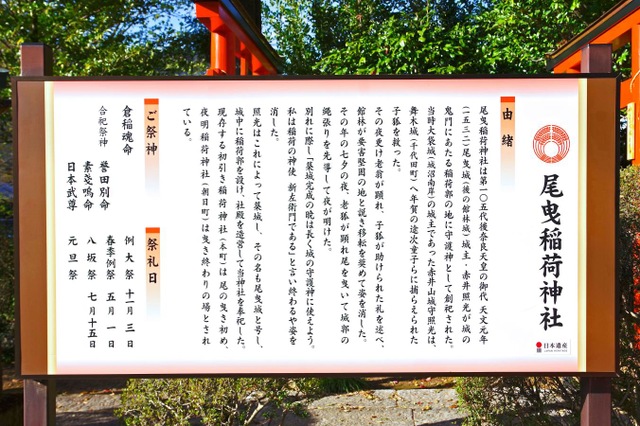 尾曳稲荷神社
日本遺産
由緒
尾曳稲荷神社は第一〇五代後奈良天皇の御代 天文元年
(一五三二)尾曳城(後の館林城)城主・赤井照光が城の
鬼門にあたる稲荷郭の地に守護神として創祀された。
当時大袋城(城沼南岸)の城主であった赤井山城守照光は、
舞木城(千代田町)へ年賀の途次童子らに捕らえられた
子狐を救った。
その夜更け老翁が顕れ、子狐が助けられた礼を述べ、
館林が要害堅固の地と説き移転を奨めて姿を消した。
その年の七夕の夜、老狐が顕れ尾を曳いて城郭の
縄張りを先導して夜が明けた。
別れに際し「築城完成の暁は長く城の守護神に使えよう。
私は稲荷の神使 新左衛門である」と言い終わるや姿を
消した。
照光はこれによって築城し、その名も尾曳城と号し、
城中に稲荷郭を設け、社殿を造営して当神社を奉祀した。
現存する初引き稲荷神社(本町)は尾の曳き初め、
夜明稲荷神社(朝日町)は曳き終わりの場とされ
ている。
ご祭神
倉稲魂命
合祀祭神 誉田別命
素戔嗚命
日本武尊
祭礼日
例大祭 十一月三日
春季例祭 五月一日
八坂祭 七月十五日
元旦祭